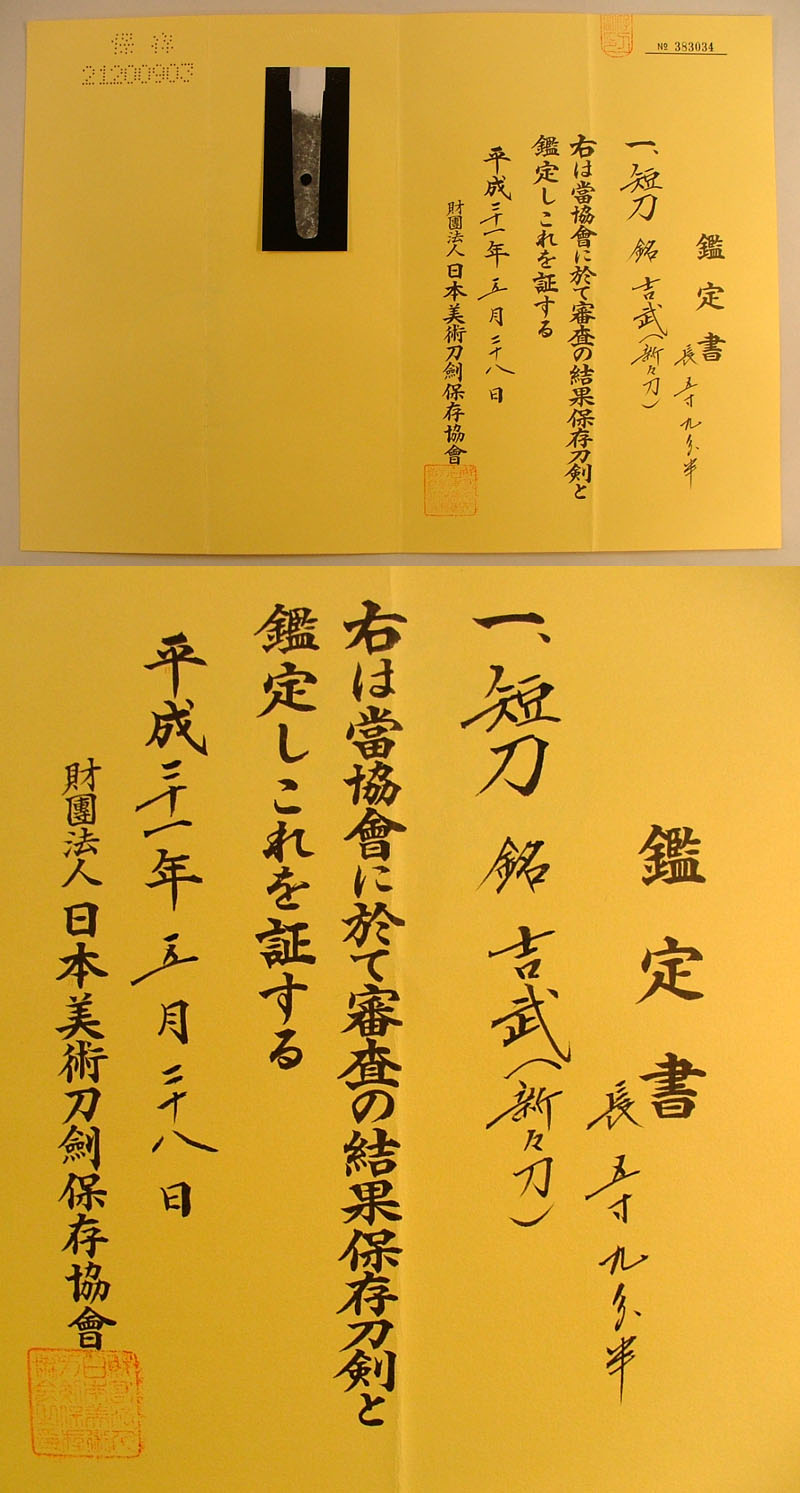 保存
21200903
№ 383034
鑑定書
長五寸九分半
一、短刀 銘 吉武（新々刀）
右は當協會に於て審査の結果保存刀剣と
鑑定しこれを証する
平成二十一年五月二十八日
財團法人日本美術刀劍保存協會
鑑定書
長五寸九分半
一、短刀 銘 吉武（新々刀）
右は當協會に於て審査の結果保存刀剣と
鑑定しこれを証する
平成二十一年五月二十八日
財團法人日本美術刀劍保存協會